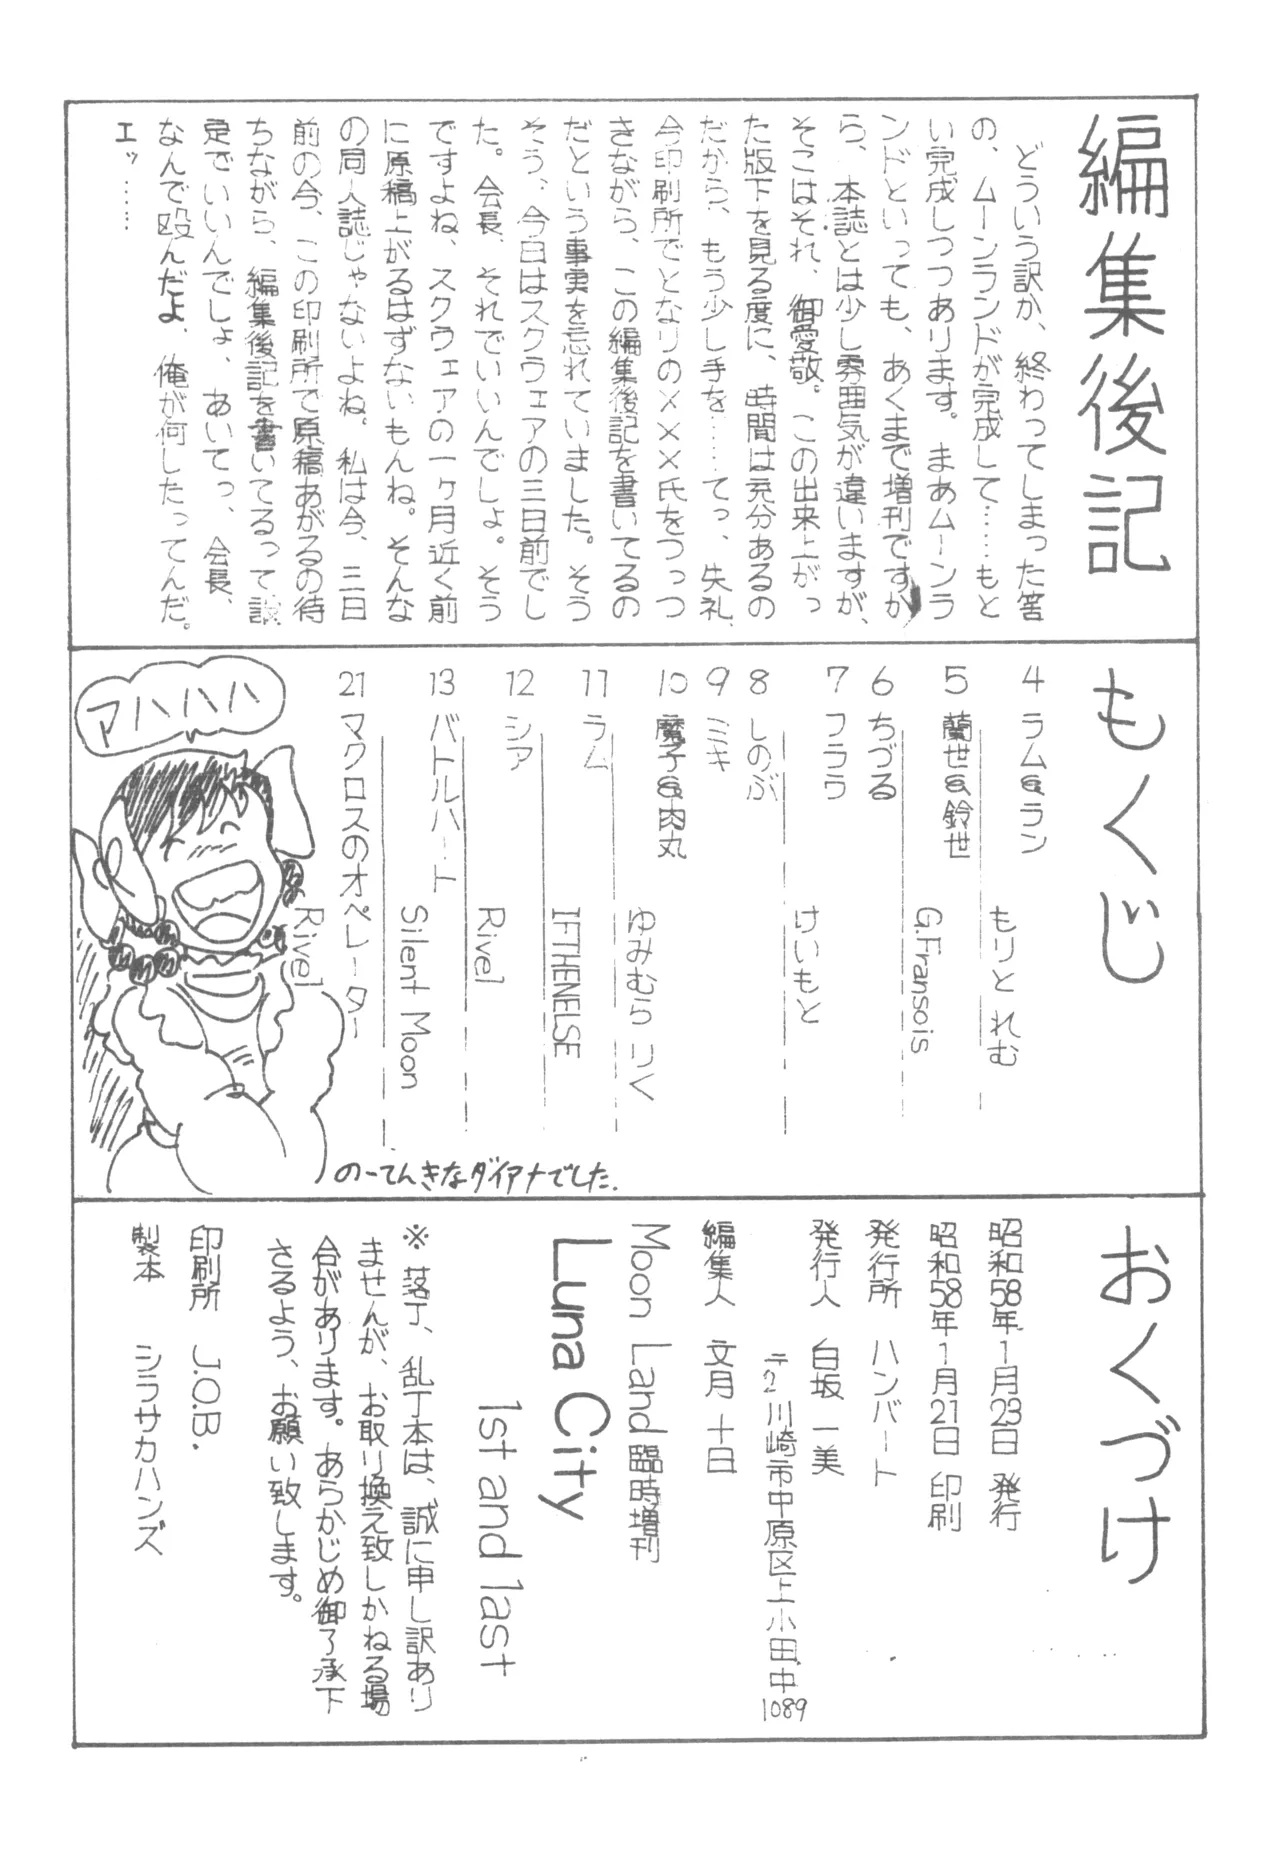 編集後記
どういう訳か、終わってしまった筈
の、ムーンランドが完成して……もと
い完成しつつあります。まあムーンラ
ンドといっても、あくまで増刊ですか
ら、本誌とは少し雰囲気が違いますが、
そこはそれ、御愛敬。この出来上がっ
た版下を見る度に、時間は充分あるの
だから、もう少し手を……てっ、失礼、
今印刷所でとなりの×××氏をつっつ
きながら、この編集後記を書いてるの
だという事実を忘れていました。そう
そう、今日はスクウェアの三日前でし
た。会長、それでいいんでしょ。そう
ですよね、スクウェアの一ヶ月近く前
に原稿上がるはずないもんね。そんな
の同人誌じゃないよね。私は今、三日
前の今、この印刷所で原稿あがるの待
ちながら、編集後記を書いてるって設
定でいいんでしょ、あいてっ、会長、
なんで殴んだよ、俺が何したってんだ。
エッ……
もくじ
4 ラム&ラン
もりとれむ
5 蘭世&鈴世
G.Fransois
6 ちづる
7 フララ
けいもと
8 しのぶ
9 ミキ
10 魔子&肉丸
ゆみむら りく
11 ラム
IFTHENELSE
12 シア
Rivel
13 バトルハート
Silent Moon
21 マクロスのオペレーター
Rivel
アハハハ
のーてんきなダイアナでした.
おくづけ
昭和58年1月23日 発行
昭和58年1月21日 印刷
発行所 ハンバート
発行人 白坂 一美
〒211 川崎市中原区上小田中
1089
編集人 文月 十日
Moon Land臨時増刊
Luna City
1st and last
※落丁、乱丁本は、誠に申し訳あり
ませんが、お取り換え致しかねる場
合があります。あらかじめ御了承下
さるよう、お願い致します。
印刷所 J.O.B.
製本 シラサカハンズ